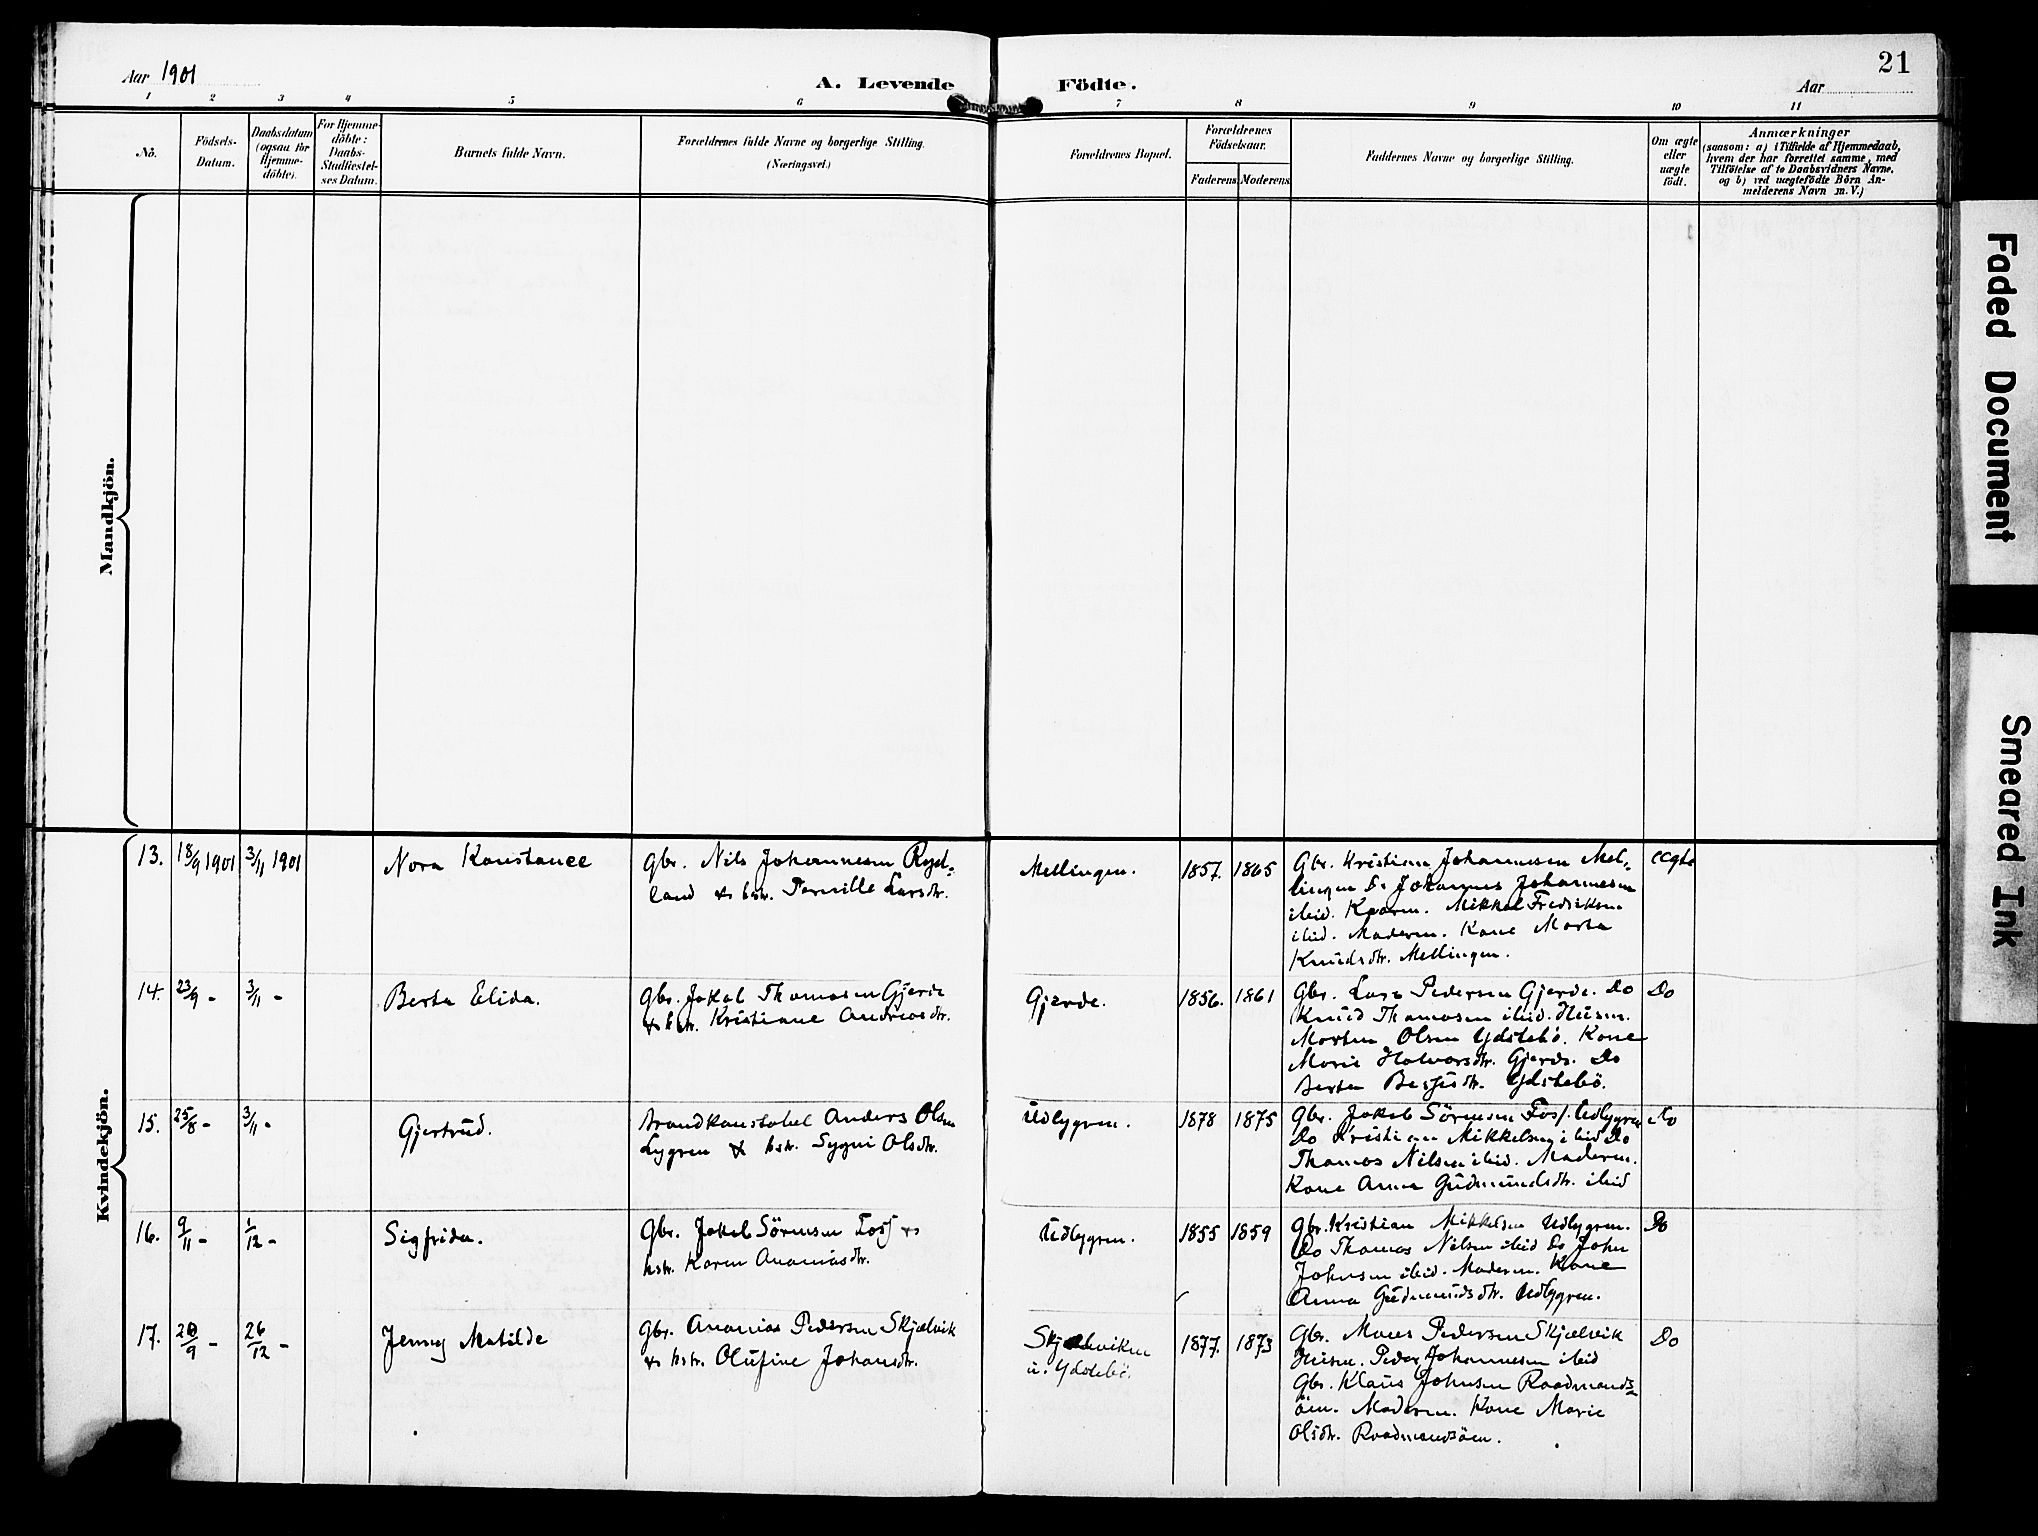 21
Aar 1901
A. Levende Födte.
Aar
1 2 3 4 5 6 7 8 9 10 11
Nö.
Födsels-
Datum.
Daabsdatum
(ogsaa for
Hjemme-
döbte).
For Hjemme-
döbte:
Daabs-
Stadfæstel-
ses Datum.
Barnets fulde Navn.
Forældrenes fulde Navne og borgerlige Stilling.
(Næringsvei.)
Forældrenes Bopæl.
Forældrenes
Födselsaar.
Faderens.
Moderens.
Faddernes Navne og borgerlige Stilling.
Om ægte
eller
uægte
födt.
Anmærkninger
(saasom: a) i Tilfælde af Hjemmedaab,
hvem der har forrettet samme, med
Tilföielse af to Daabsvidners Navne,
og b) ved uægtefödte Börn An-
melderens Navn m. V.)
Mandkjön.
Kvindekjön.
13. 18/9 1901 3/11 1901
Nora Konstance
Gbr. Nils Johannesen
land & hstr. Pernille Larsdtr.
Mellingen.
1857. 1865
Gbr. Kristian Johannesen Mel-
lingen Do Johannes Johannesen
ibid. Kaarm. Mikkel Fredriksen
ibid. Moderen. Kone Marta
Knudsdtr. Mellingen.
ægte
14. 23/9 - 3/11 -
Berta Elida.
Gbr. Jakob Thomasen Gjerde
& hstr. Kristiane Andreasdtr.
Gjerde.
1856. 1861
Gbr. Lars Pedersen Gjerde. Do
Knud Thomasen ibid. Husm.
Morten Olsen Ydstebö. Kone
Marie Halvorsdtr. Gjerde. Do
Berta Ydstebö.
Do
15. 25/8 - 3/11 -
Gjertrud.
Brandkonstabel Anders Olsen
Lygren & hstr. Sygni Olsdtr.
Udlygren.
1878 1875
Gbr. Jakob Sörensen Foss. Udlygren
Do Kristian Mikkelsen ibid Do
Thomas Nilsen ibid. Moderen.
Kone Anna Gudmundsdtr. ibid
Do
16. 9/11 - 1/12 -
Sigfrida.
Gbr. Jakob Sörensen Foss &
hstr. Karen Ananiasdtr.
Udlygren.
1855 1859
Gbr. Kristian Mikkelsen Udlygren.
Do Thomas Nilsen ibid Do John
Johnsen ibid. Moderen. Kone
Anna Gudmundsdtr. Udlygren.
Do
17. 20/9 - 26/12 -
Jenny Matilde
Gbr. Ananias Pedersen Skjælvik
& hstr. Olufine Johansdtr.
Skjælviken
u. Ydstebö.
1877. 1873
Gbr. Mons Pedersen Skjælvik
Husm. Peder Johannesen ibid
Gbr. Klaus Johnsen Raadmands-
öen. Moderen. Kone Marie
Olsdtr. Raadmandsöen.
Do
Faded Document
Smeared Ink